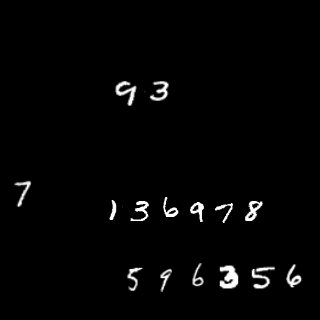 93
7
136978
596356